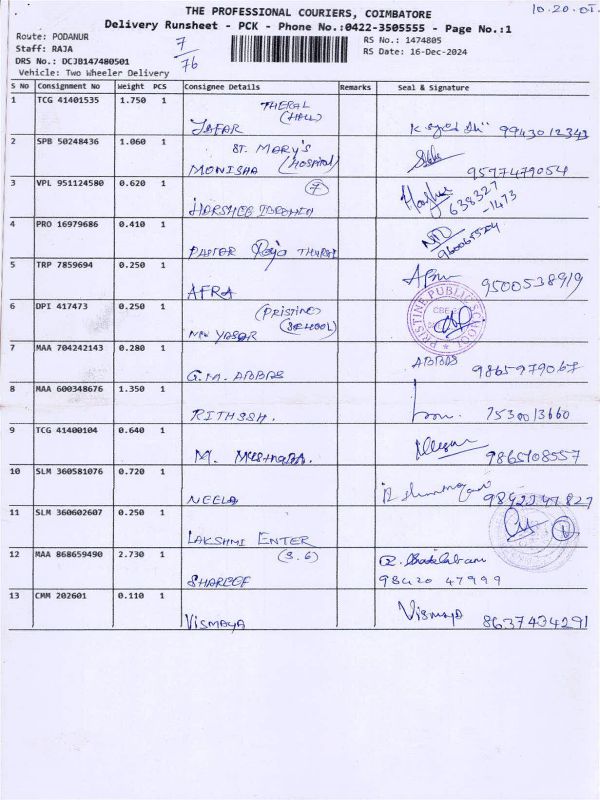 THE PROFESSIONAL COURIERS, COIMBATORE
10.20.
Delivery Runsheet - PCK - Phone No.:0422-3505555 - Page No.:1
Route: PODANUR
Staff: RAJA
DRS No.: DCJB147480501
Vehicle: Two Wheeler Delivery
7
76
RS No.: 1474805
RS Date: 16-Dec-2024
S No Consignment No Weight PCS Consignee Details Remarks Seal & Signature
1 TCG 41401535 1.750 1 THERAL
(HALL)
JAFAR 9943012343
2 SPB 50248436 1.060 1 ST. MARY'S
(HOSPITAL)
MONISHA 9597479054
3 VPL 951124580 0.620 1 7
638327
-1473
4 PRO 16979686 0.410 1
5 TRP 7859694 0.250 1 AFRA 9500538919
6 DPI 417473 0.250 1 (PRISTINE)
(SCHOOL)
YASAR PRISTINE PUBLIC SCHOOL
CBE
7 MAA 704242143 0.280 1 G.M. ABBAS ABBAS 9865979067
8 MAA 600348676 1.350 1 RITHSSH. 7530013660
9 TCG 41400104 0.640 1 M. 9865108557
10 SLM 360581076 0.720 1 NEELA 9842347827
11 SLM 360602607 0.250 1 LAKSHMI ENTER
12 MAA 868659490 2.730 1 (S.6)
SHAREEF 98420 47999
13 CMM 202601 0.110 1 VISMAYA Vismaya 8637434291